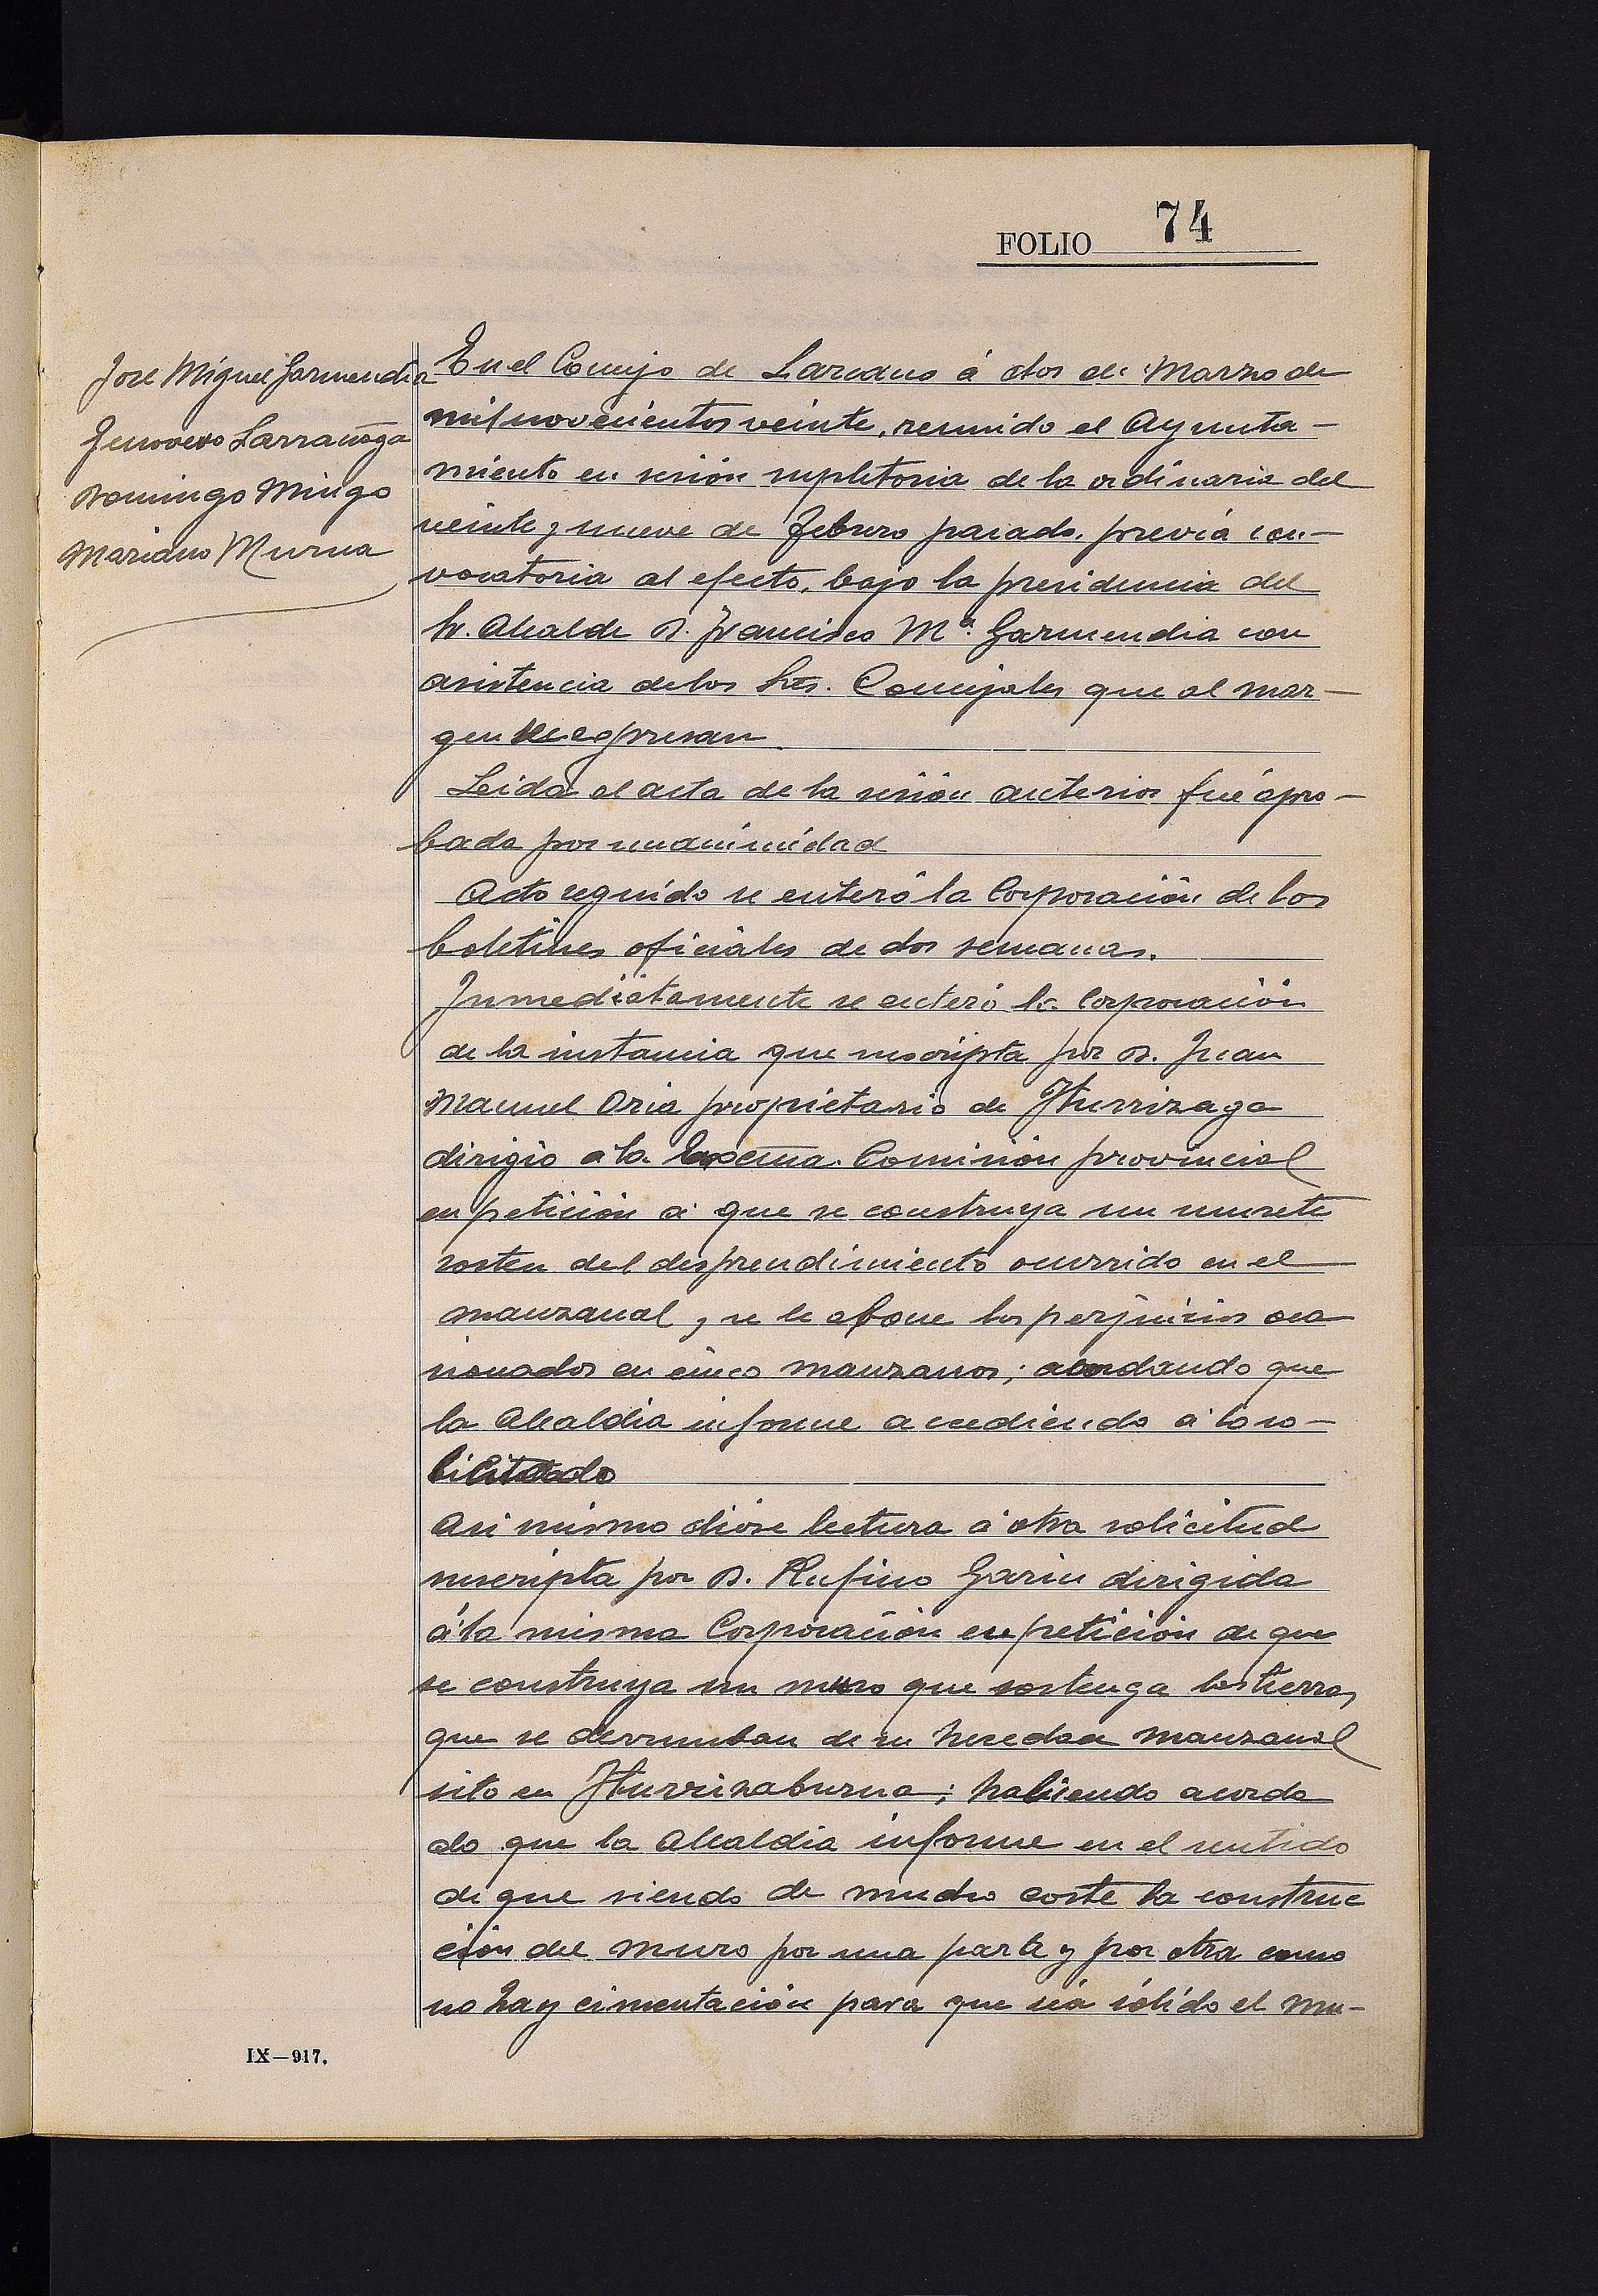 FOLIO 74
Jose Miguel Garmendia
Genovevo Larrañaga
Domingo Mingo
Mariano Murua
En el Concejo de Lazcano á dos de Marzo de
mil novecientos veinte, reunido el Ayunta-
miento en sesión supletoria de la ordinaria del
veinte y nueve de Febrero pasado, previa con-
vocatoria al efecto, bajo la presidencia del
Sr. Alcalde D. Francisco Mª. Garmendia con
asistencia de los Sres. Concejales que al mar-
gen se expresan
Leida el acta de la sesión anterior fué apro-
bada por unanimidad
Acto seguido se enteró la Corporación de los
boletines oficiales de dos semanas.
Inmediatamente se enteró la Corporación
de la instancia que suscripta por D. Juan
Manuel Oria propietario de Iturrizaga
dirigió a la Excma. Comisión provincial
en petición á que se construya un murete
sosten del desprendimiento ocurrido en el
manzanal y se le abone los perjuicios oca
sionados en cinco manzanos; acordando que
la Alcaldia informe accediendo á lo so-
licitado
Asi mismo dióse lectura á otra solicitud
suscripta por D. Rufino Garin dirigida
á la misma Corporación en petición de que
se construya un muro que sostenga las tierras
que se derrumban de su heredad manzanal
sito en Iturrizaburua; habiendo acorda
do que la Alcaldia informe en el sentido
de que siendo de mucho coste la construc
ción del muro por una parte y por otra como
no hay cimentación para que sea sólido el mu-
IX—917.